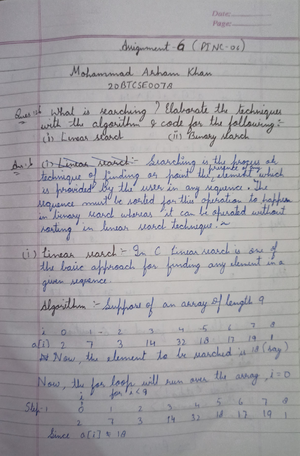 Date:
Page:
Assignment - 6 (PTNC-06)
Mohammad Arham Khan
20BTCSE007A
Ques:-1 What is searching? Elaborate the techniques
with the algorithm & code for the following:-
(i) Linear search (ii) Binary search
Ans:- (i) Linear search:- Searching is the process of
technique of finding or point the element which
is provided by the user in any sequence. The
sequence must be sorted for this operation to happen
in binary search whereas it can be operated without
sorting in linear search technique.
(i) Linear search :- In C linear search is one of
the basic approach for finding any element in a
given sequence.
Algorithm :- Suppose of an array of length 9
i 0 1 2 3 4 5 6 7 8
a[i] 2 7 3 14 32 18 17 19 1
Now, the element to be searched is 18 (say)
Now, the for loop will run over the array, i=0
for i<9
Step-1 0 1 2 3 4 5 6 7 8
2 7 3 14 32 18 17 19 1
Since a[i] ≠ 18